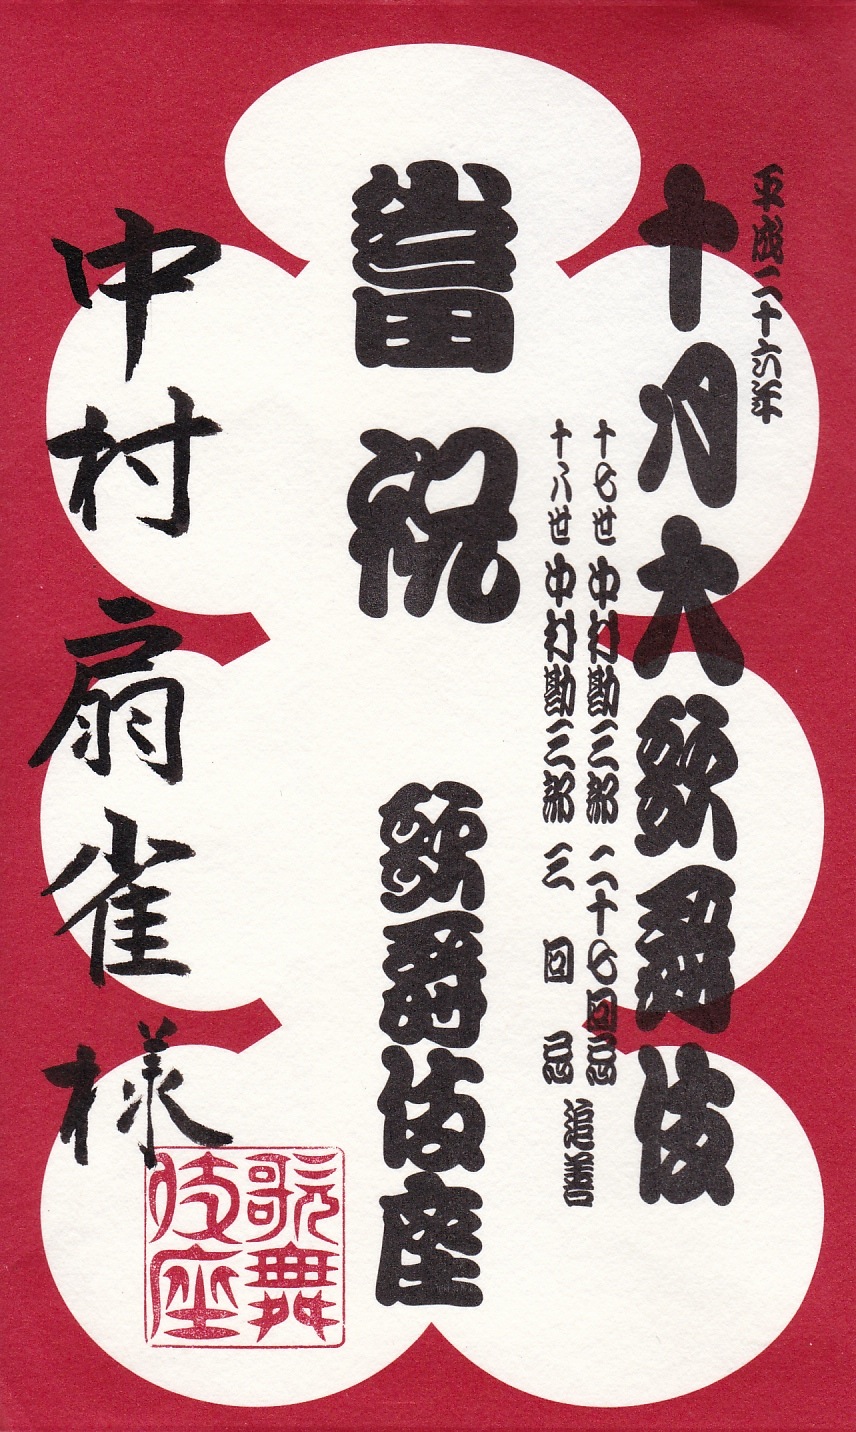 平成二十六年
十月大歌舞伎
十七世 中村勘三郎 二十七回忌
十八世 中村勘三郎 三回忌
追善
當祝
歌舞伎座
中村扇雀様
歌舞
伎座